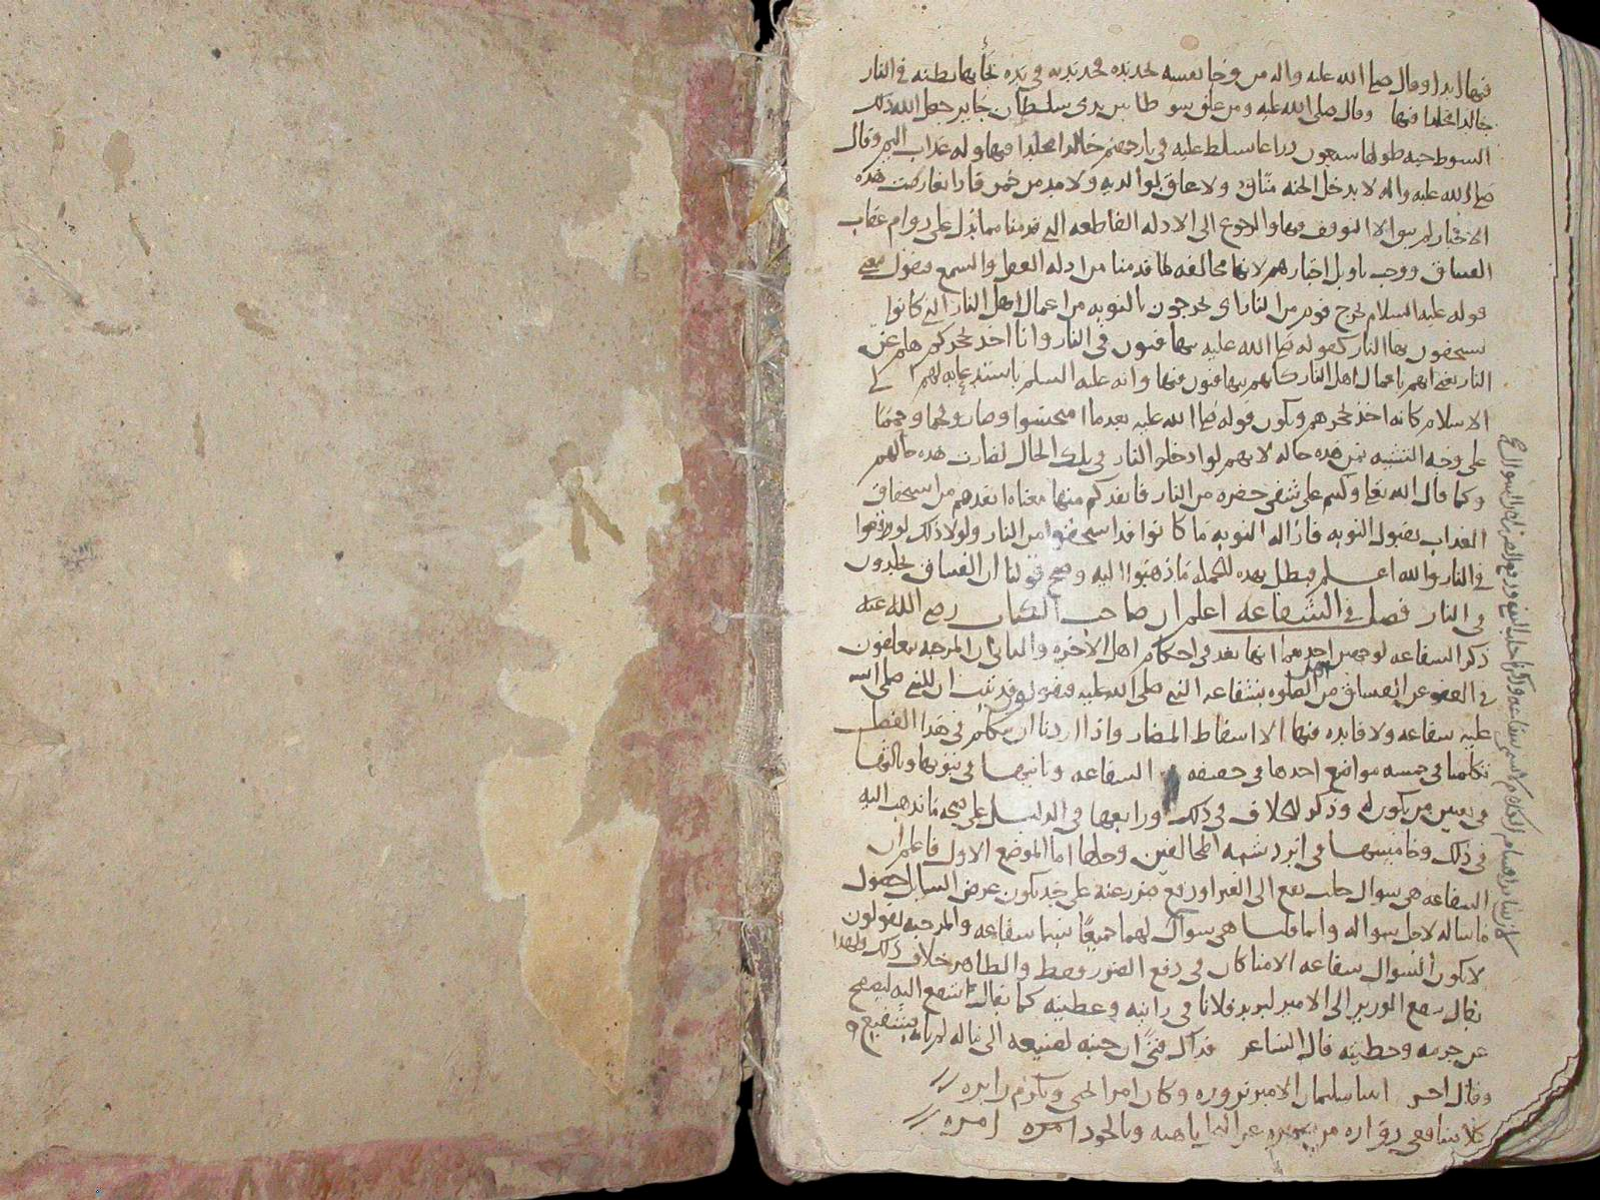 فيها ابدا وقال صلى الله عليه واله من وجا نفسه بحديدة فحديدته في يده يجا بها بطنه في النار
خالدا مخلدا فيها وقال صلى الله عليه ومن علق سوطا بين يدي سلطان جاير جعل الله ذلك
السوط حيه طولها سبعون ذراعا يسلط عليه في نار جهنم خالدا مخلدا فيها وله عذاب اليم وقال
صلى الله عليه واله لا يدخل الجنه منان ولا عاق لوالديه ولا مدمن خمر فاذا تعارضت هذه
الاخبار لم يبق الا التوقف فيها والرجوع الى الادله القاطعه التي قدمنا مما يدل على دوام عقاب
الفساق ووجب تاويل اخبارهم لانها مخالفه لما قدمنا من ادله العقل والسمع فنقول معنى
قوله عليه السلام يخرج قوم من النار اي يخرجون بالتوبه من اعمال اهل النار التي كانوا
يستحقون بها النار كقوله صلى الله عليه يتهافتون في النار وانا اخذ بحجزكم هلم عن
النار يعني انهم باعمال اهل النار كانهم يتهافتون فيها وانه عليه السلم باستدعايه لهم الى
الاسلام كانه اخذ بحجزهم ويكون قوله صلى الله عليه بعدما امتحشوا وصاروا فحما وحمما
على وجه التشبيه بمن هذه حاله لانهم لو ادخلوا النار في تلك الحال لصارت هذه حالهم
وكما قال الله تعالى وكنتم على شفى حفرة من النار فانقذكم منها معناه انقذهم من استحقاق
العذاب بقبول التوبه فازاله التوبه ما كانوا قد استحقوا من النار ولولا ذلك لوقعوا
في النار والله اعلم فبطل بهذه الجمله ما ذهبوا اليه وصح قولنا ان الفساق يخلدون
في النار فصل في الشفاعه اعلم ان صاحب الكتاب رضي الله عنه
ذكر الشفاعه لوجهين احدهما انها تعد في احكام اهل الاخره والثاني ان المرجيه يتعلقون
في العفو عن الفساق من اهل الصلوه بشفاعه النبي صلى الله عليه فنقول قد ثبت ان للنبي صلى الله
عليه شفاعه ولا فايده فيها الا اسقاط المضار واذا اردنا ان نتكلم في هذا الفصل
تكلمنا في خمسه مواضع احدها في حقيقه الشفاعه وثانيها في ثبوتها وثالثها
في تعيين من يكون له وذكر الخلاف في ذلك ورابعها في الدليل على صحه ما نذهب اليه
في ذلك وخامسها في ايراد شبه المخالفين وحلها اما الموضع الاول فاعلم ان
الشفاعه هي سوال جلب نفع الى الغير او دفع ضرر عنه على حد يكون غرض السايل حصول
ما ساله لاجل سواله وانما قلنا هي سوال لهما جميعا شفاعه والمرجيه يقولون
لا يكون السوال شفاعه الا متى كان في دفع الضرر فقط والظاهر خلاف ذلك ولهذا
يقال شفع الوزير الى الامير ليزيد فلانا في راتبه وعطيته كما يقال شفع اليه ليصفح
عن جرمه وخطيته قال الشاعر فذاك فتى ان جيته لصنيعه الى ماله لم تاته بشفيع
وقال اخر اتينا سليمان الامير نزوره وكان امرا يحبى ويكرم زايره
كلا شافعي زواره من ضميره عن البخل ناهيه وبالجود امره